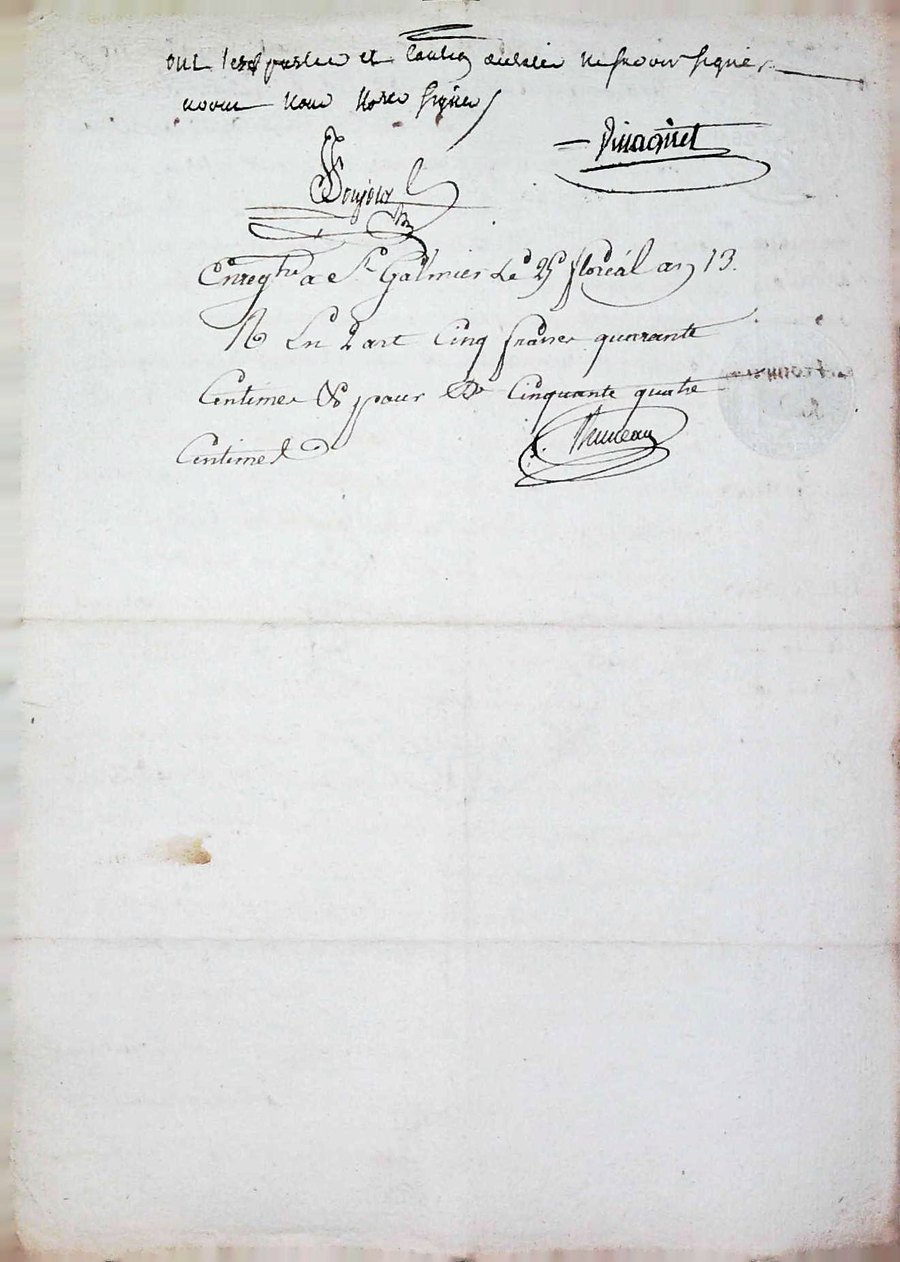 ont lesd parties et caution declaré ne savoir signer
nous notre signé
Pinaquet
Bonjour
Enregtré a St Galmier Le 25 floréal an 13.
R En 2 art Cinq francs quarante
Centimes & pour Dme Cinquante quatre
Centimes
Bruneau